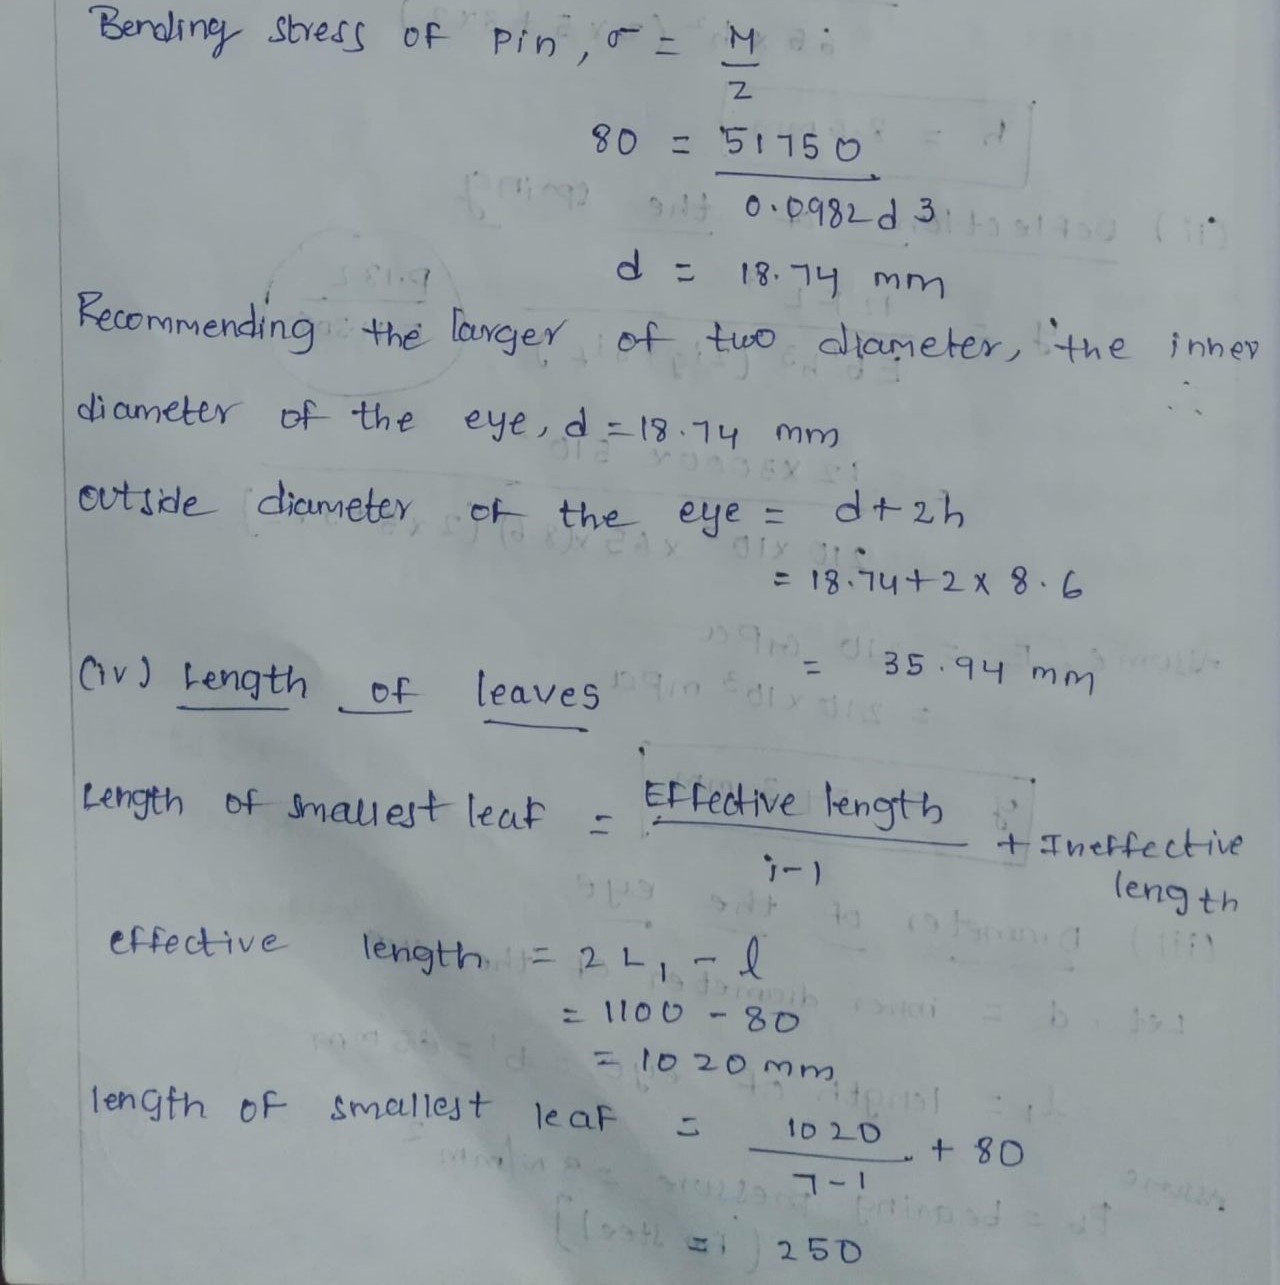 Bending stress of pin, σ = M
2
80 = 51750
0.0982d3
d = 18.74 mm
Recommending the larger of two diameter, the inner
diameter of the eye, d = 18.74 mm
outside diameter of the eye = d + 2h
= 18.74 + 2 x 8.6
= 35.94 mm
(iv) Length of leaves
Length of smallest leaf = Effective length
i-1
+ Ineffective
length
effective length = 2L1 - l
= 1100 - 80
= 1020 mm
length of smallest leaf = 1020 + 80
7-1
= 250